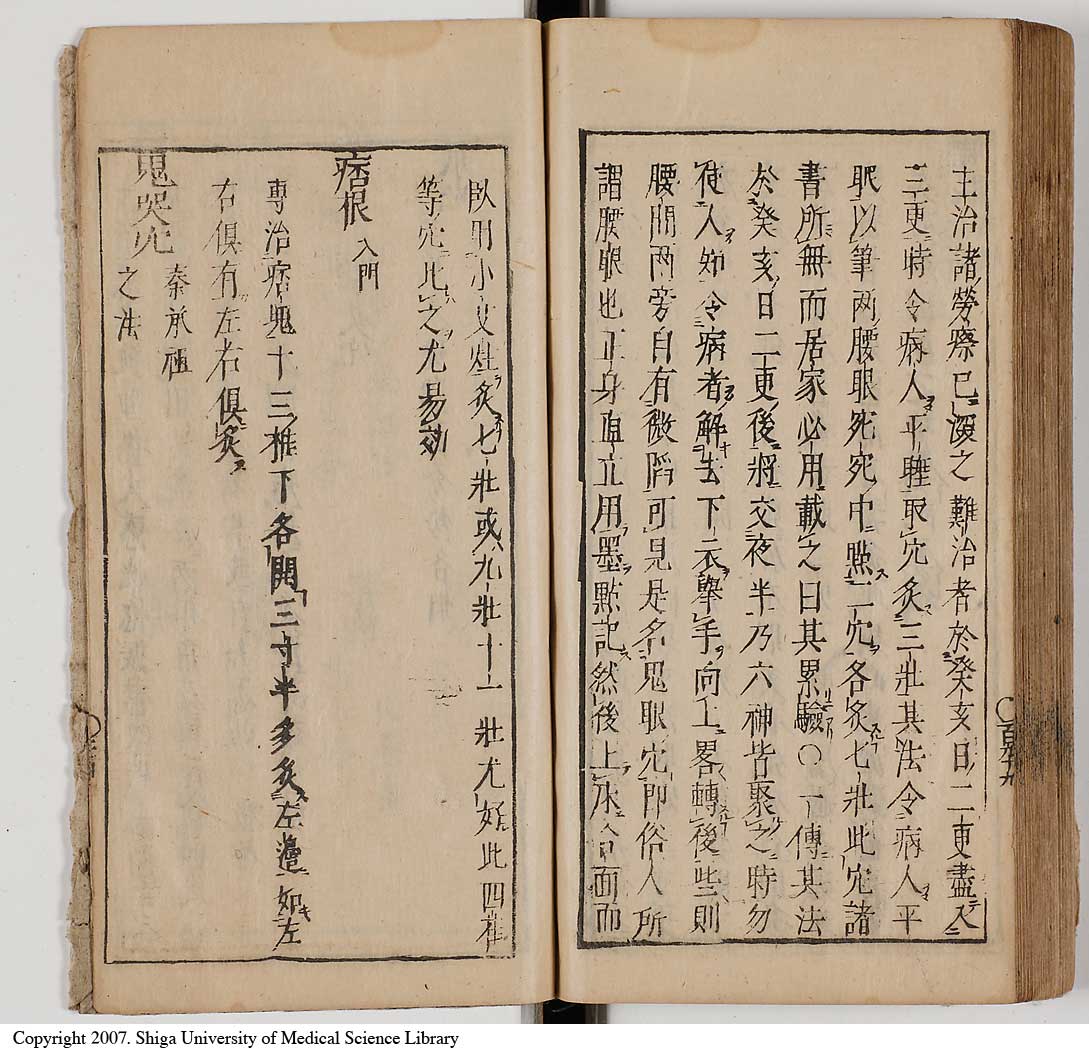 主治諸勞瘵已深之難治者於癸亥日二更盡入
三更時令病人平睡取穴灸三壯其法令病人平
眠以筆兩腰眼宛宛中點二穴各灸七壯此穴諸
書所無而居家必用載之曰其累驗〇一傳其法
於癸亥日二更後將交夜半乃六神皆聚之時勿
使人知令病者解去下衣舉手向上畧轉後些則
腰間兩旁自有微陷可見是名鬼眼穴即俗人所
謂腰眼也正身直立用墨點記然後上床合面而
臥用小艾炷灸七壯或九壯十一壯尤好此四花
等穴比之尤易効
痞根 入門
專治痞塊十三椎下各開三寸半多灸左邊如左
右俱有左右俱灸
鬼哭穴 秦承祖
之法
百九十九
Copyright 2007. Shiga University of Medical Science Library